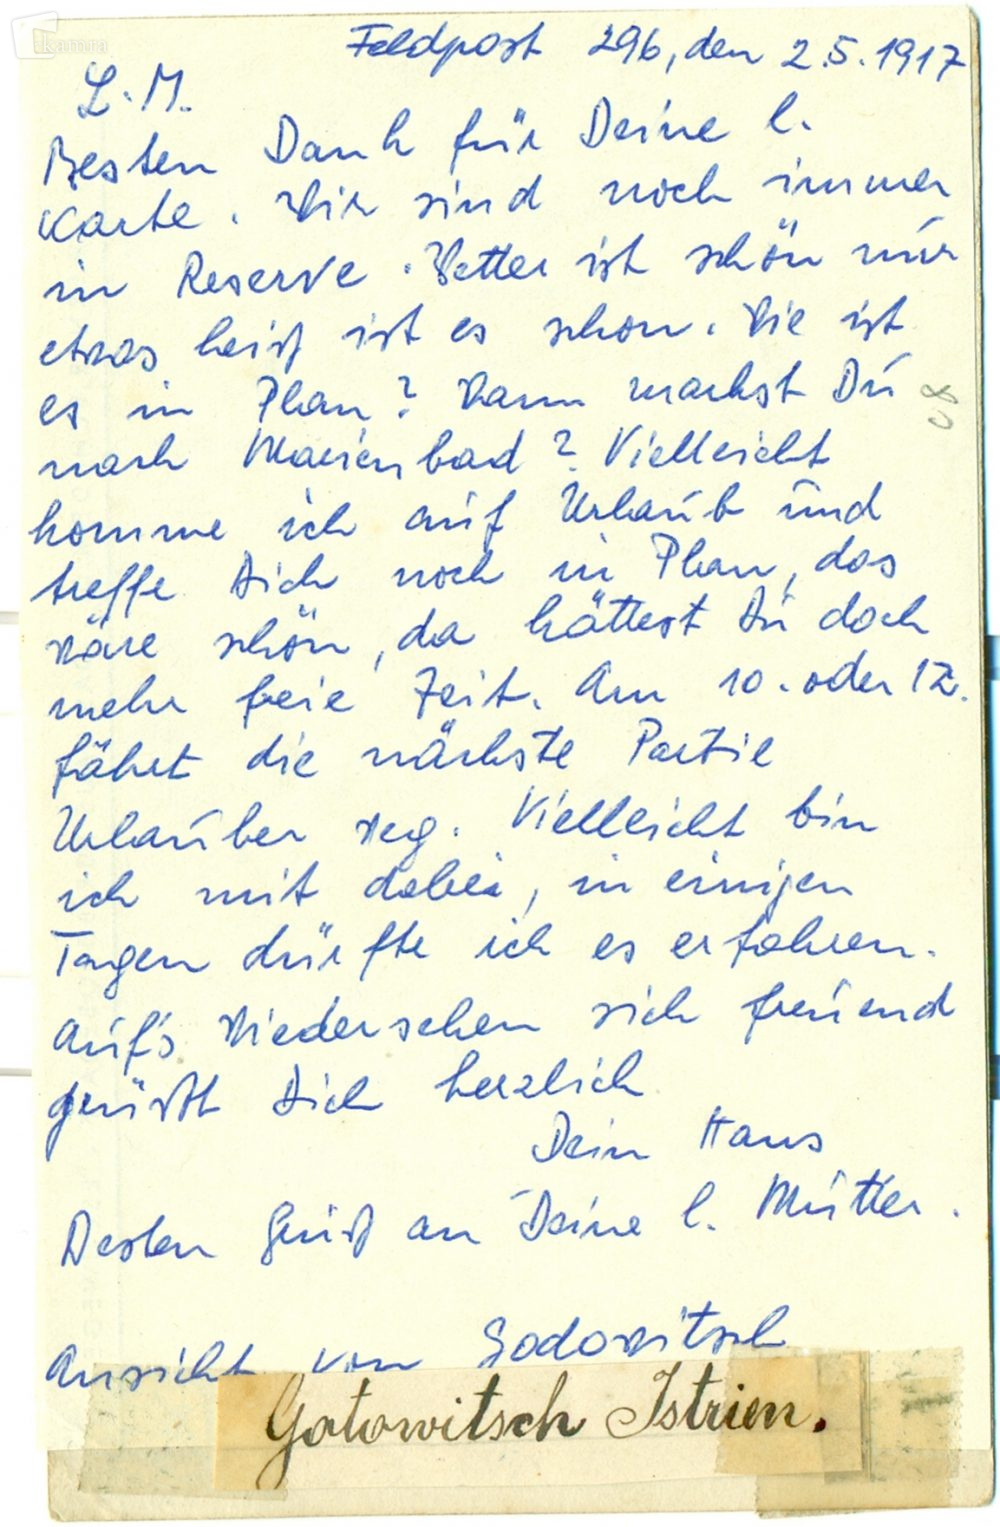 kamra
Feldpost 296, den 2.5.1917
L. M.
Besten Dank für Deine l.
Karte. Wir sind noch immer
in Reserve. Wetter ist schön nur
etwas heiß ist es schon. Wie ist
es in Plan? Wann machst Du
nach Marienbad? Vielleicht
komme ich auf Urlaub und
treffe Dich noch in Plan, das
wäre schön, da hättest Du doch
mehr freie Zeit. Am 10. oder 12.
fährt die nächste Partie
Urlauber weg. Vielleicht bin
ich mit dabei, in einigen
Tagen dürfte ich es erfahren.
Auf's Wiedersehen sich freuend
grüßt Dich herzlich
Dein Hans
Besten Gruß an Deine l. Mutter.
Ansicht von Godowitsch
Gotowitsch Istrien.